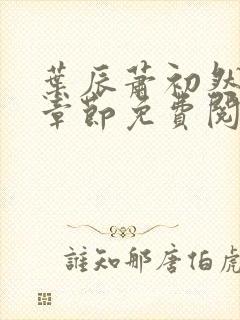 葉辰蕭初然
章節免費閱
誰知那唐伯虎